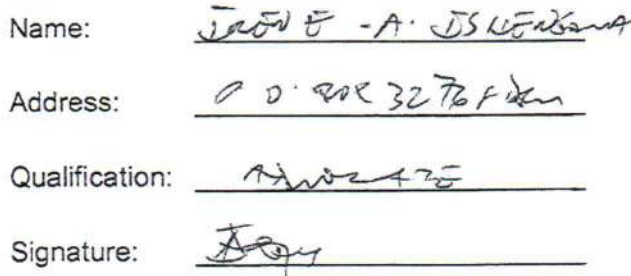 Name: IRENE - A.
Address: P O. BOX 3276
Qualification: ADVOCATE
Signature: